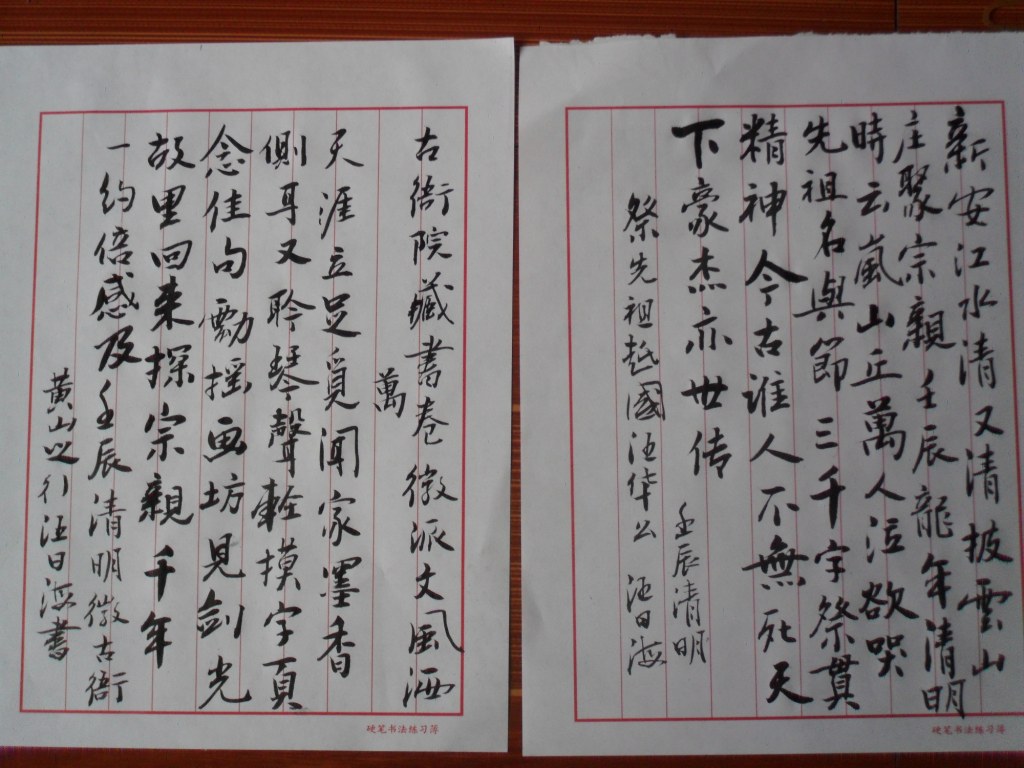 新安江水清又清披雲山
庄聚宗親壬辰龍年清明
時云嵐山丘萬人泣欲哭
先祖名與節三千字祭奠
精神今古谁人不無死天
下豪杰亦世传
壬辰清明
祭先祖越國汪华公 汪日海
硬笔书法练习簿
古衙院藏書卷徽派文風洒
萬
天涯立足覓闻家墨香
側耳又聆琴聲轻摸字頁
念佳句動摇画坊見剑光
故里回来探宗親千年
一约倍感及壬辰清明徽古衙
黄山之行汪日海書
硬笔书法练习簿